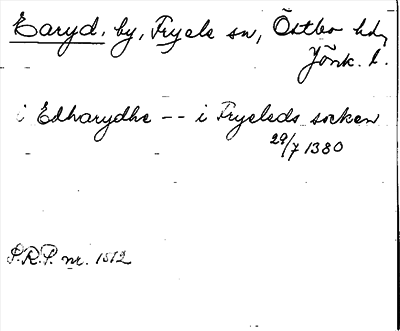 Earyd. by, Fryele sn, Östbo hd,
Jönk. l.
i Edharydhe -- i Fryeleds socken
29/7 1380
S.R.P. nr. 1512